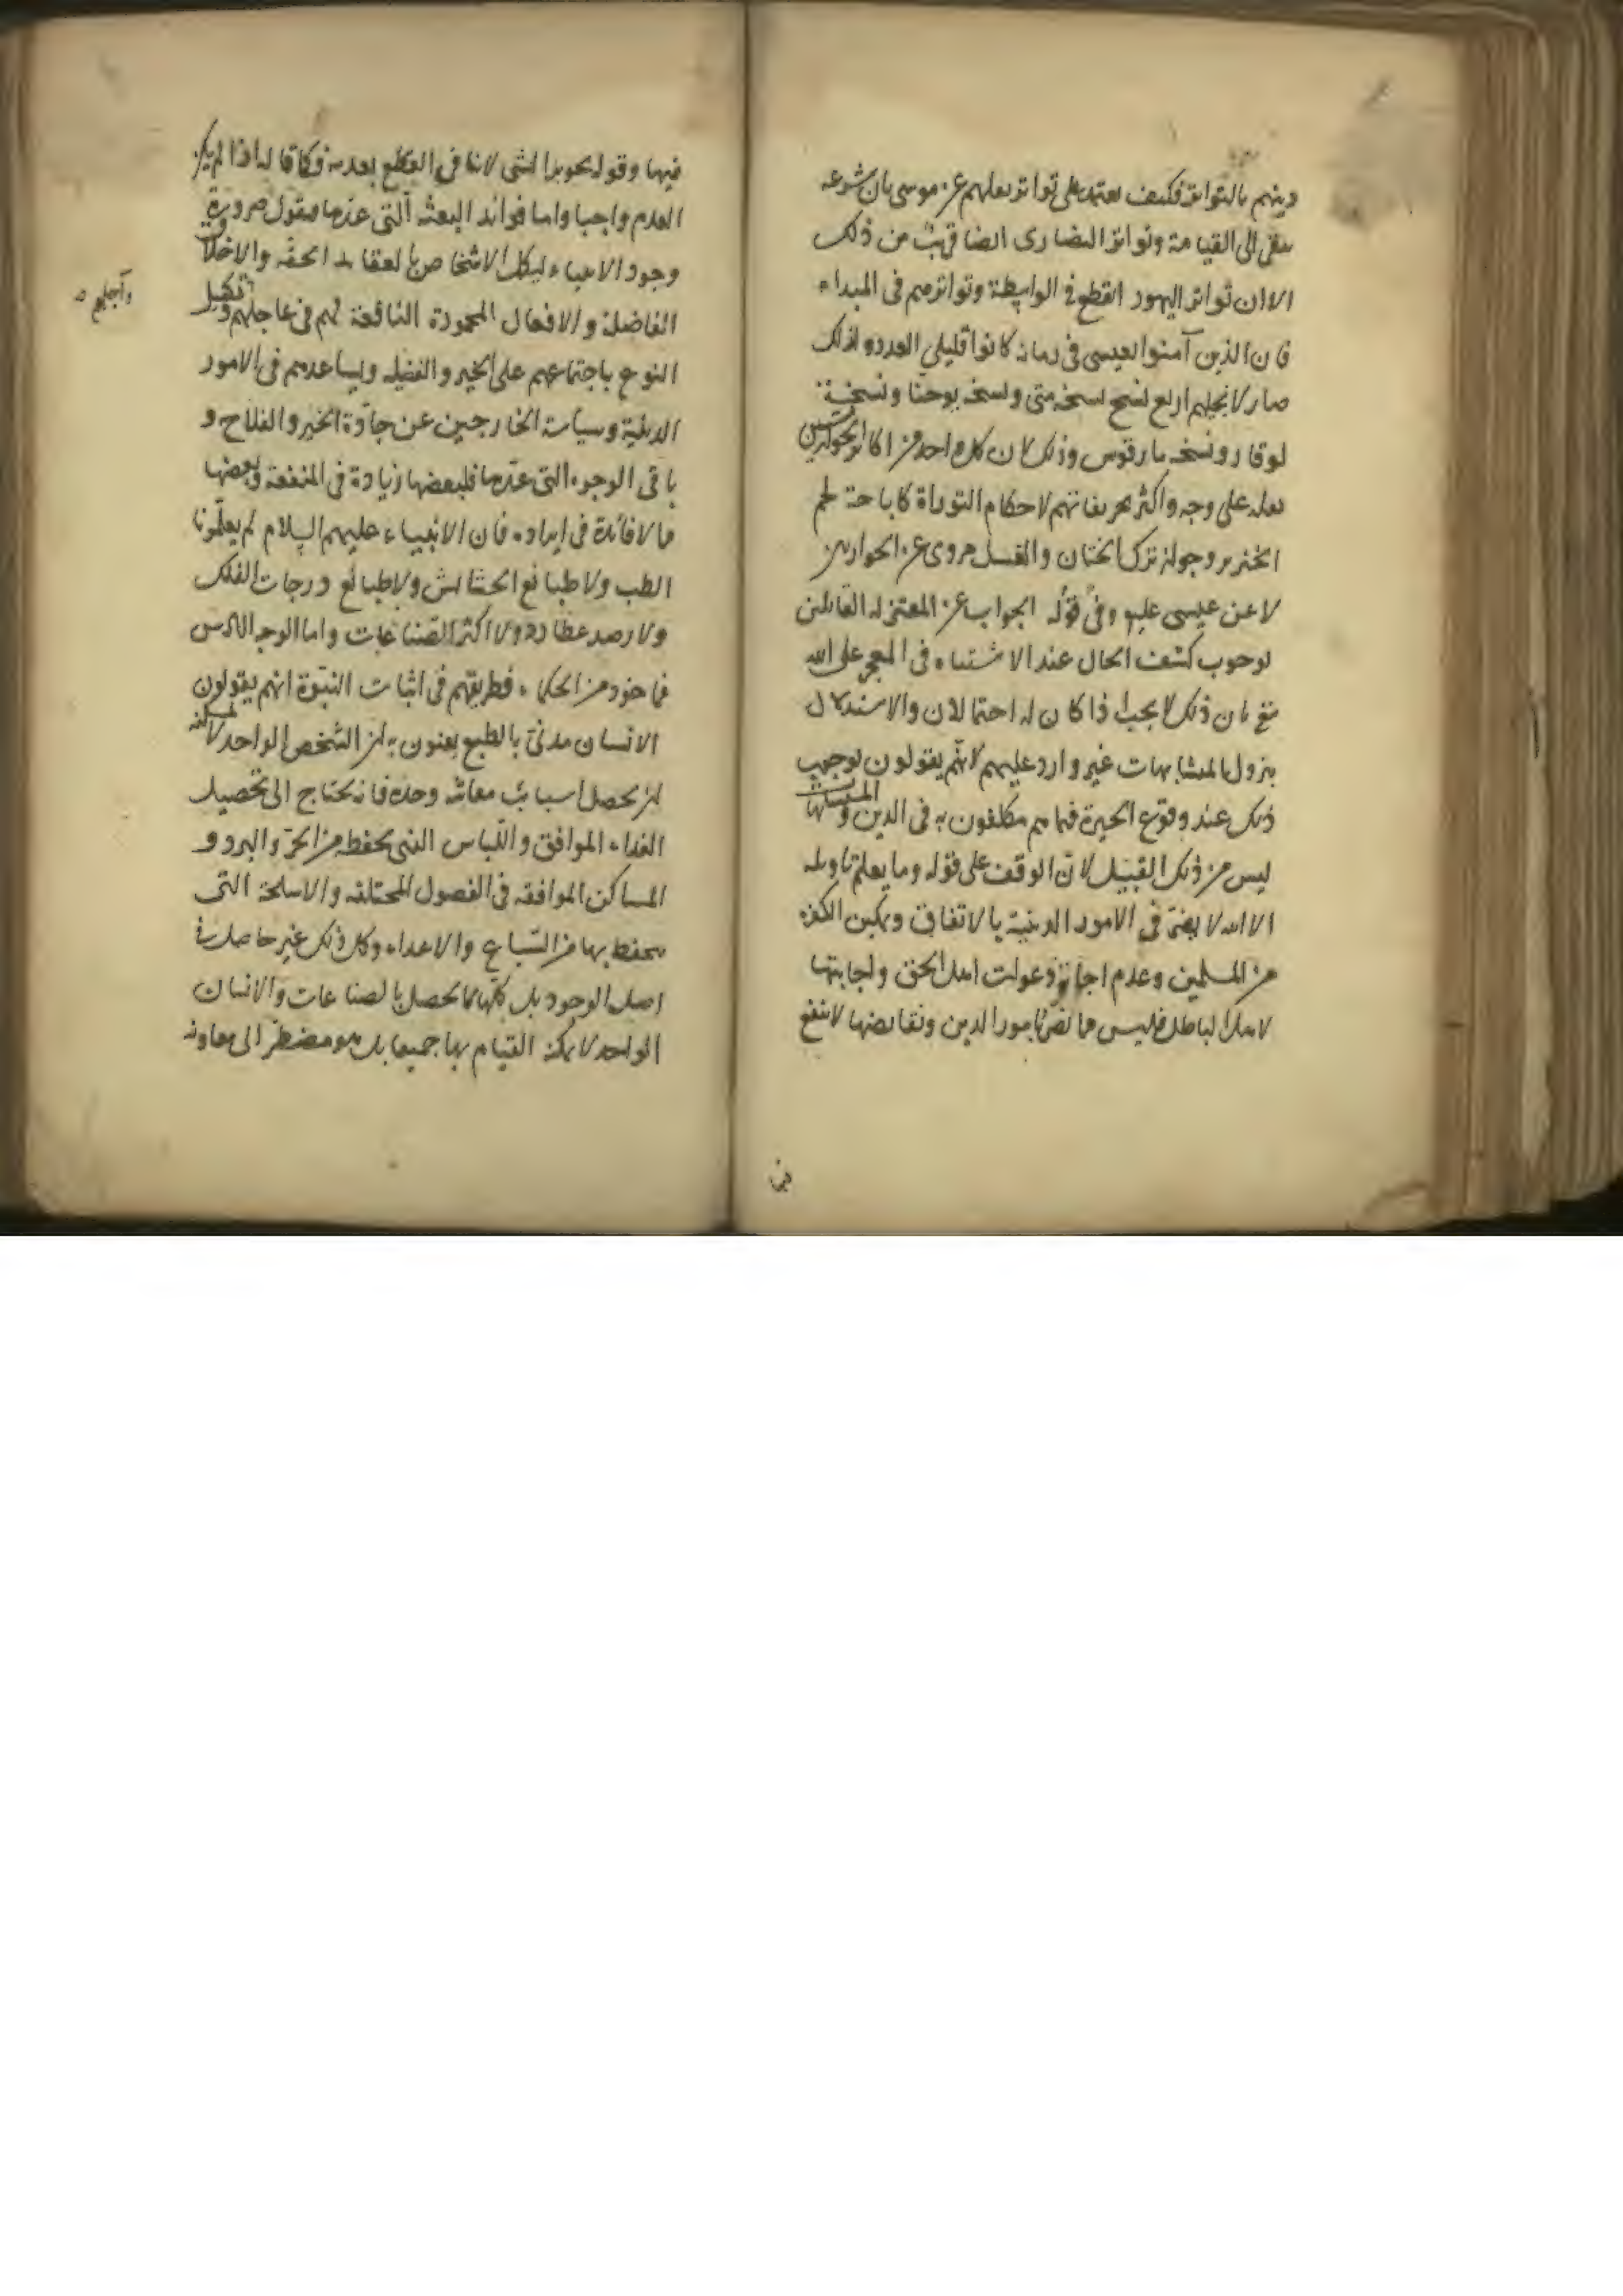 دينهم بالتواتر فكيف يعتمد على تواتر نقلهم عن موسى بان شرعه
يبقى الى القيامة وتواتر النصارى ايضا قريب من ذلك
الا ان تواتر اليهود انقطع في الواسطة وتواترهم في المبداء
فان الذين آمنوا بعيسى في زمانه كانوا قليلي العدد ولذلك
صار لانجيلهم اربع نسخ نسخة متى ونسخة يوحنا ونسخة
لوقا ونسخة مارقوس وذلك لان كل واحد من اكابر الحواريين
نقله على وجه واكثر تحريفاتهم لاحكام التوراة كاباحة لحم
الخنزير وجواز ترك الختان والغسل مروى عن الحواريين
لا عن عيسى عليه وفي قوله الجواب عن المعتزلة القائلين
لوجوب كشف الحال عند الاشتباه في المعجز على الله
مع بان ذلك لا يجب اذا كان له احتمالان والاستدلال
بنزول المتشابهات غير وارد عليهم لانهم يقولون بوجوب
ذلك عند وقوع الحيرة فيما هم مكلفون به في الدين والمتشابهات
ليس من ذلك القبيل لان الوقف على قوله وما يعلم تاويله
الا الله لا يضر في الامور الدينية بالاتفاق وتمكين الكفرة
من المسلمين وعدم اجابة دعوات اهل الحق واجابتها
لاهل الباطل فليس مما يضر بامور الدين ونقايضها لا تنفع
فيها
فيها وقوله تجويز الشى لا ينافي القطع بعدمه وكما قال اذا لم يكن
العدم واجبا واما فوائد البعثة التي عدها فنقول ضرورة
وجود الانبياء ليكمل الاشخاص بالعقايد الحقة والاخلاق
الفاضلة والافعال المحمودة النافعة لهم في عاجلهم وتكميل
وآجلهم
النوع باجتماعهم على الخير والفضيلة ويساعدهم في الامور
الدينية وسياسة الخارجين عن جادة الخير والفلاح و
باقى الوجوه التى عدها فلبعضها زيادة في المنفعة وبعضها
مما لا فائدة في ايراده فان الانبياء عليهم السلام لم يعلمونا
الطب ولا طبائع الحشائش ولا طبائع درجات الفلك
ولا رصد عطارد ولا اكثر الصناعات واما الوجه السادس
فماخوذ من الحكماء فطريقهم في اثبات النبوة انهم يقولون
الانسان مدنى بالطبع يعنون به ان الشخص الواحد لا يمكنه
ان يحصل اسباب معاشه وحده فانه يحتاج الى تحصيل
الغذاء الموافق واللباس الذى يحفظه من الحر والبرد و
المساكن الموافقة في الفصول المختلفة والاسلحة التى
يحفظ بها من السباع والاعداء وكل ذلك غير حاصل في
اصل الوجود بل كلها مما يحصل بالصناعات والانسان
الواحد لا يمكنه القيام بها جميعا بل هو مضطر الى معاونة